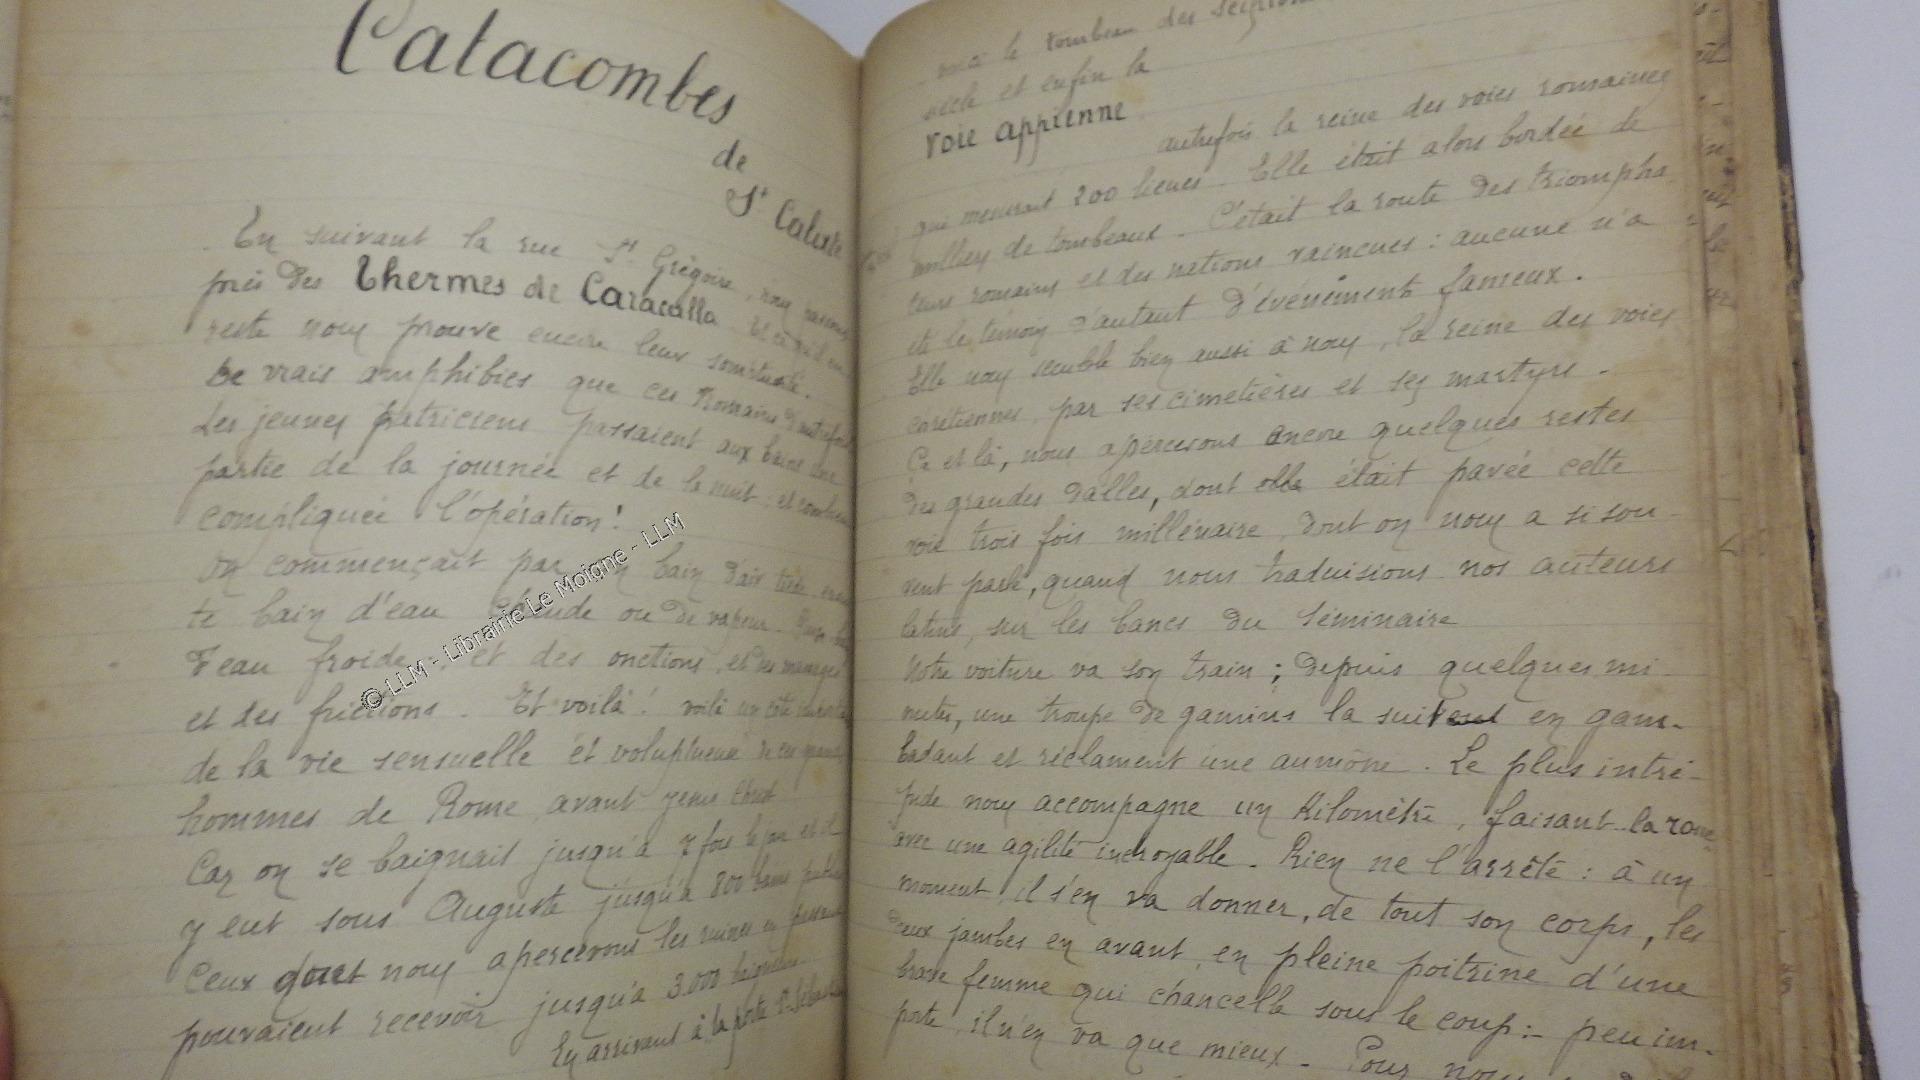 Catacombes
de
St Calixte
En suivant la rue St Grégoire, nous passons
près des Thermes de Caracalla. Et ce qu'il en
reste nous prouve encore leur somptuosité.
De vrais amphibies que ces Romains d'autrefois
Les jeunes patriciens passaient aux bains une
partie de la journée et de la nuit : et combien
compliquée l'opération!
On commençait par un bain d'air tiède, ensui
te bain d'eau chaude ou de vapeur. Puis bain
d'eau froide : et des onctions, et des massages
et des frictions. Et voilà! voilà un côté
de la vie sensuelle et voluptueuse de ces grands
hommes de Rome avant Jésus Christ
Car on se baignait jusqu'à 7 fois le jour et il
y eut sous Auguste jusqu'à 800 bains publics
Ceux dont nous apercevons les ruines en passant
pouvaient recevoir jusqu'à 3.000 baigneurs.
En arrivant à la porte St Sébastien
voici le tombeau des Scipions
siècle et enfin la
Voie appienne
autrefois la reine des voies romaines
qui mesurait 200 lieues. Elle était alors bordée de
milliers de tombeaux. C'était la route des triompha
teurs romains et des nations vaincues : aucune n'a
été le témoin d'autant d'événements fameux.
Elle nous semble bien aussi à nous, la reine des voies
chrétiennes, par ses cimetières et ses martyrs.
Çà et là, nous apercevons encore quelques restes
des grandes dalles, dont elle était pavée cette
voie trois fois millénaire, dont on nous a si sou-
vent parlé, quand nous traduisions nos auteurs
latins, sur les bancs du séminaire
Notre voiture va son train ; depuis quelques mi-
nutes, une troupe de gamins la suivent en gam-
badant et réclament une aumône. Le plus intré-
pide nous accompagne un kilomètre, faisant la roue
avec une agilité incroyable. Rien ne l'arrête : à un
moment, il s'en va donner, de tout son corps, les
deux jambes en avant, en pleine poitrine d'une
brave femme qui chancelle sous le coup :- peu im-
porte, il n'en va que mieux. Pour nous
© LLM - Librairie Le Moigne - LLM